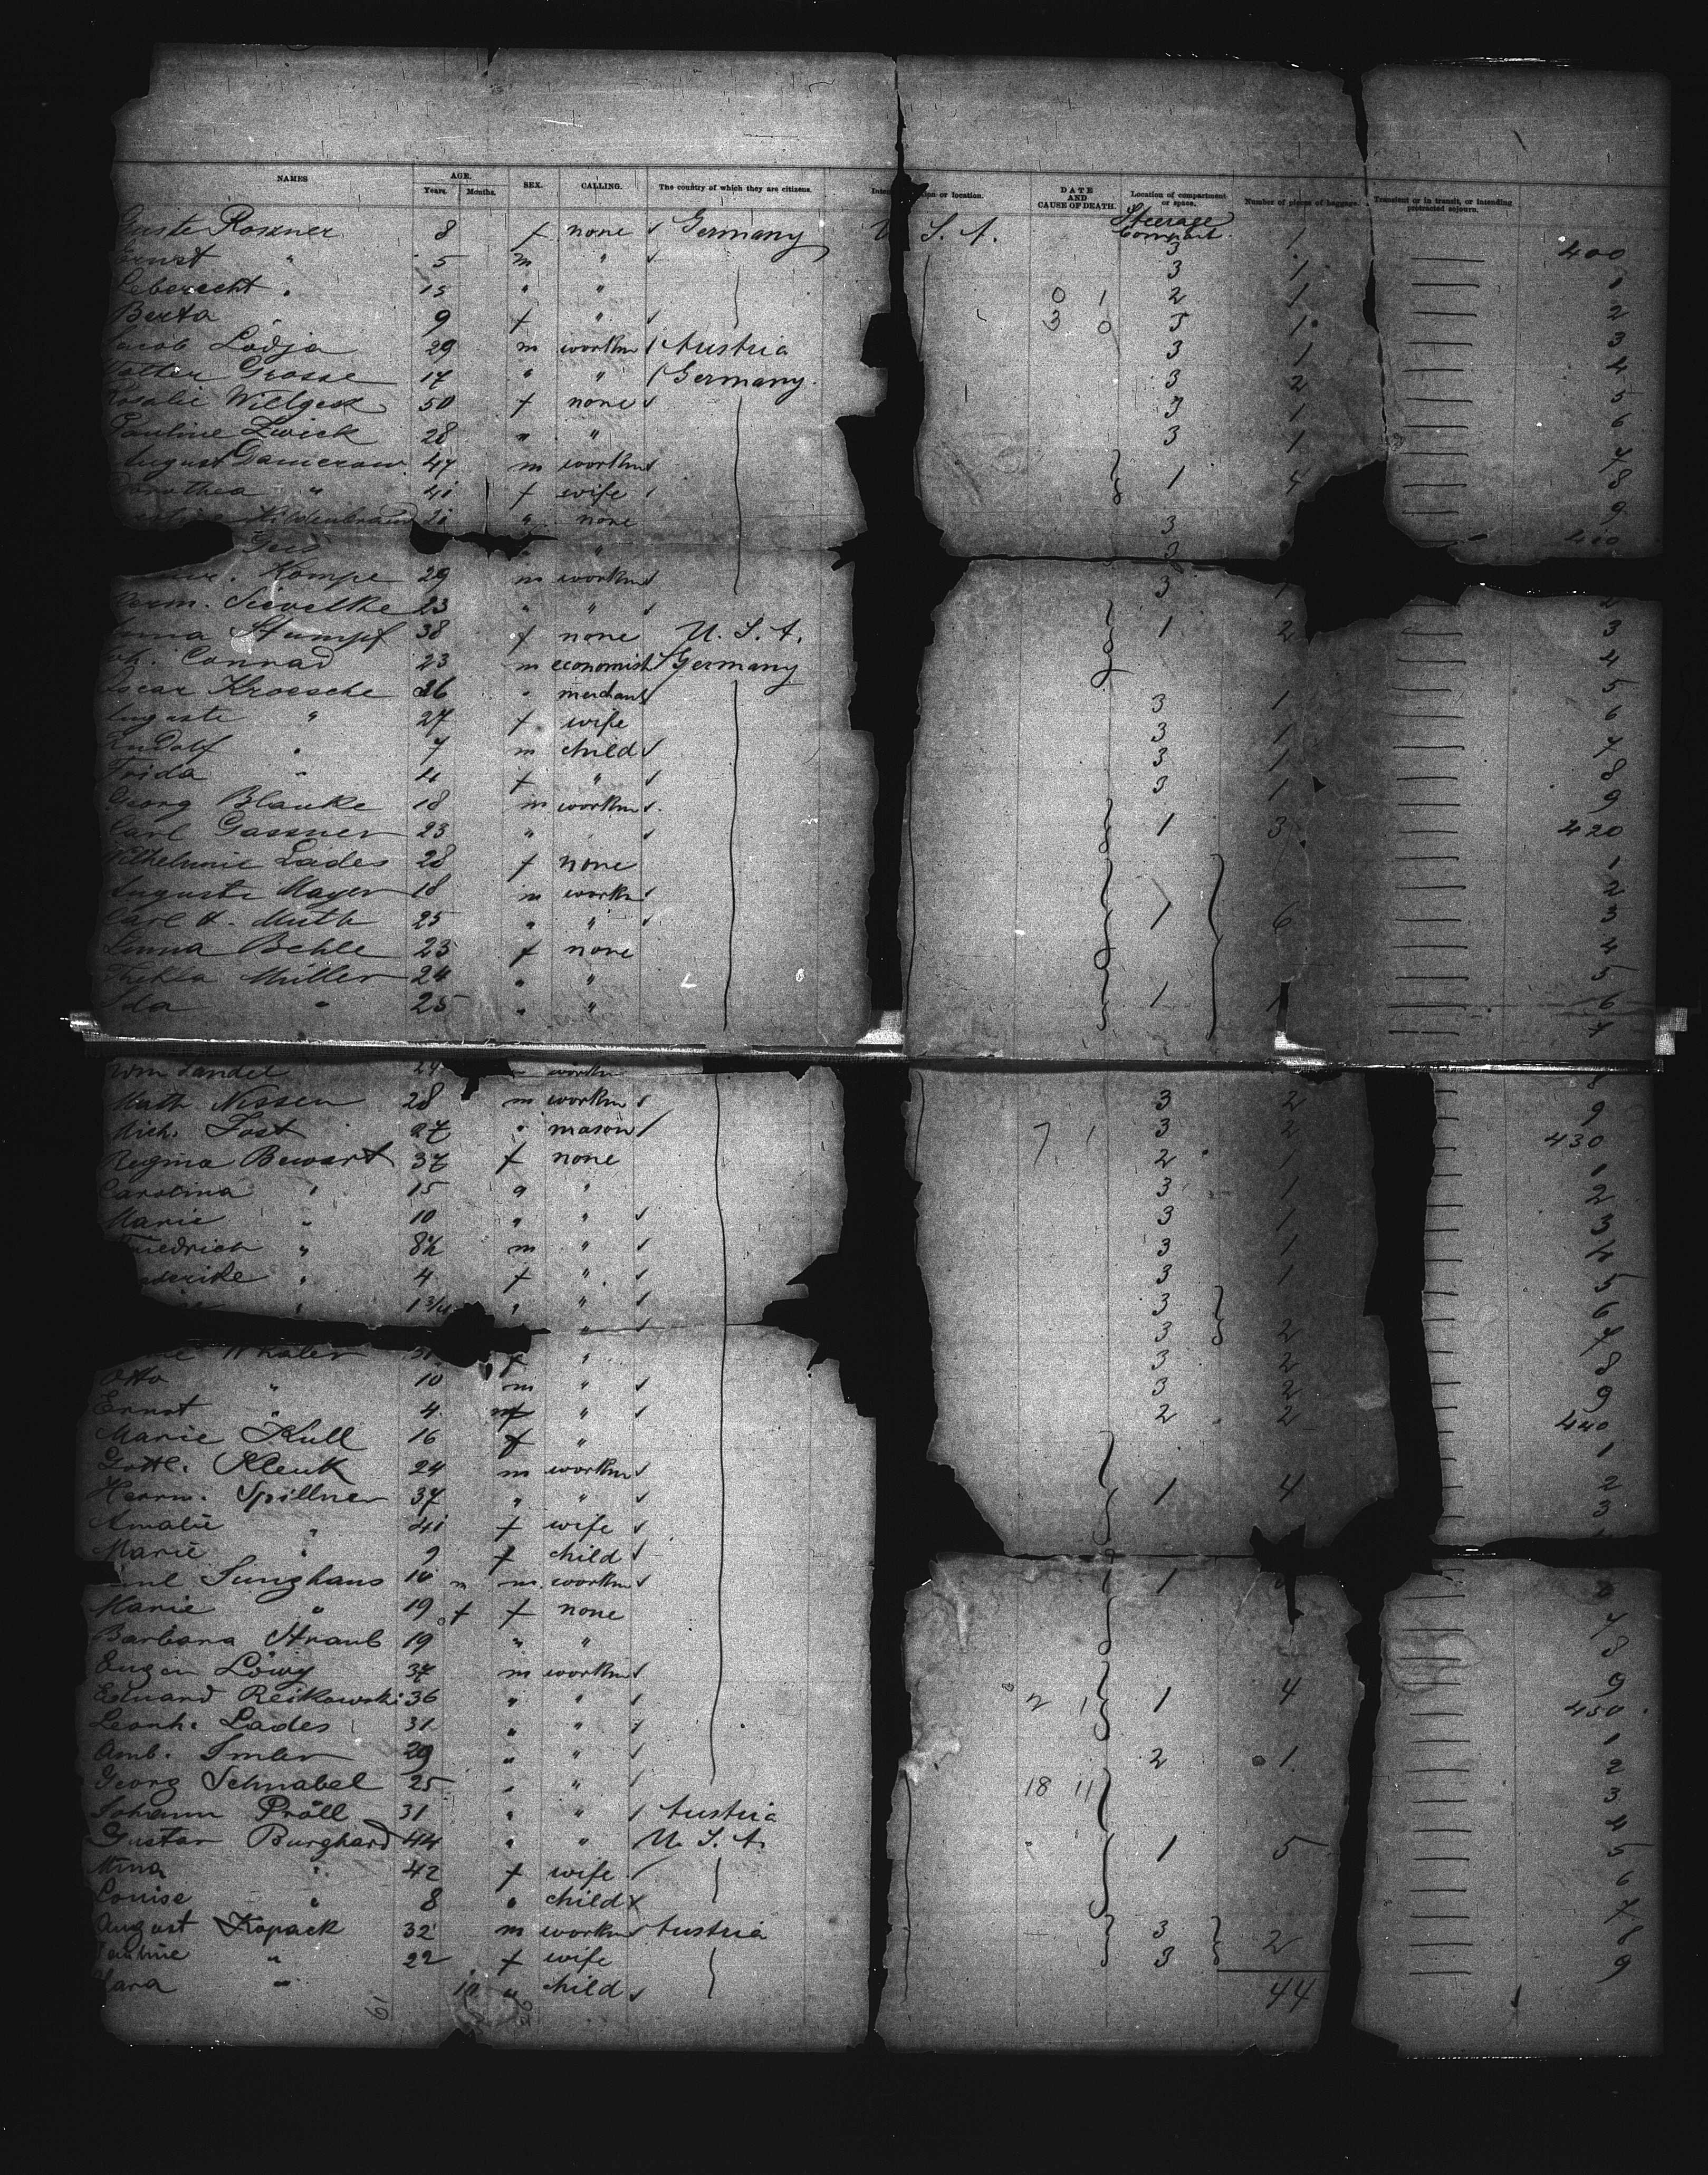 NAMES AGE. Years. Months. SEX. CALLING. The country of which they are citizens. on or location. DATE AND CAUSE OF DEATH. Location of compartment or space. Number of pieces of baggage. Transient or in transit, or intending protracted sojourn.
Roszner 8 f none Germany U. S. A. Steerage Compart. 3 1 400
Ernst " 5 m " 3 1 1
Leberecht " 15 " " 0 1 2 1 2
Berta " 9 f " 3 0 3 1 3
Jacob Lodja 29 m workm Austria 3 1 4
Grosse 17 " " Germany. 3 2 5
Rosalie Willgeck 50 f none 3 1 6
Pauline Zwick 28 " " 3 1 7
August Damerow 47 m workm 8
Dorothea " 41 f wife 1 4 9
Hildenbrand 21 " none 3 410
"
Kompe 29 m workm 3 1
Herm. Sievelke 23 " " 2
Anna Stumpf 38 f none U. S. A. 1 2 3
Joh. Conrad 23 m economist Germany 4
Oscar Kroesche 26 " merchant 3 1 5
Auguste " 27 f wife 3 1 6
Rudolf " 7 m child 3 1 7
Frida " 4 f " 3 1 8
Georg Blanke 18 m workm 9
Carl Gassner 23 " " 1 3 420
Wilhelmine Lades 28 f none 1
Auguste Mayer 18 m workm 2
Carl H. Muth 25 " " 1 6 3
Emma Behle 23 f none 4
Thekla Müller 24 " " 5
Ida " 25 " " 1 1 6
7
Wm Landel 29 workm 8
Math Nissen 28 m workm 3 2 9
Mich. Jost 27 " mason 7 1 3 2 430
Regina Bewart 37 f none 2 1 1
Carolina " 15 " " 3 1 2
Marie " 10 " " 3 1 3
Friedrich " 8½ m " 3 1 4
" 4 f " 3 1 5
" 1¾ " " 3 6
" 3 2 7
31 f " 3 2 8
Otto " 10 m " 3 2 9
Ernst " 4 " 2 2 440
Marie Kull 16 f " 1
Gottl. Klenk 24 m workm 2
Herm. Spillner 37 " " 1 4 3
Amalie " 41 f wife
Marie " 9 f child
Junghans 10 m m workm 1 6
Marie " 19 f f none 7
Barbara Straub 19 " " 8
Eugen Löwy 37 m workm 9
Eduard Reikowski 36 " " 2 1 1 4 450
Leonh. Lades 31 " " 1
Amb. Imler 29 " " 2 1 2
Georg Schnabel 25 " " 18 11 3
Johann Pröll 31 " " Austria 4
Gustav Burghard 44 " " U. S. A. 1 5 5
Mina " 42 f wife 6
Louise " 8 " child 7
August Kopack 32 m workm Austria 3 2 8
Pauline " 22 f wife 3 9
" 10 " child 44
61